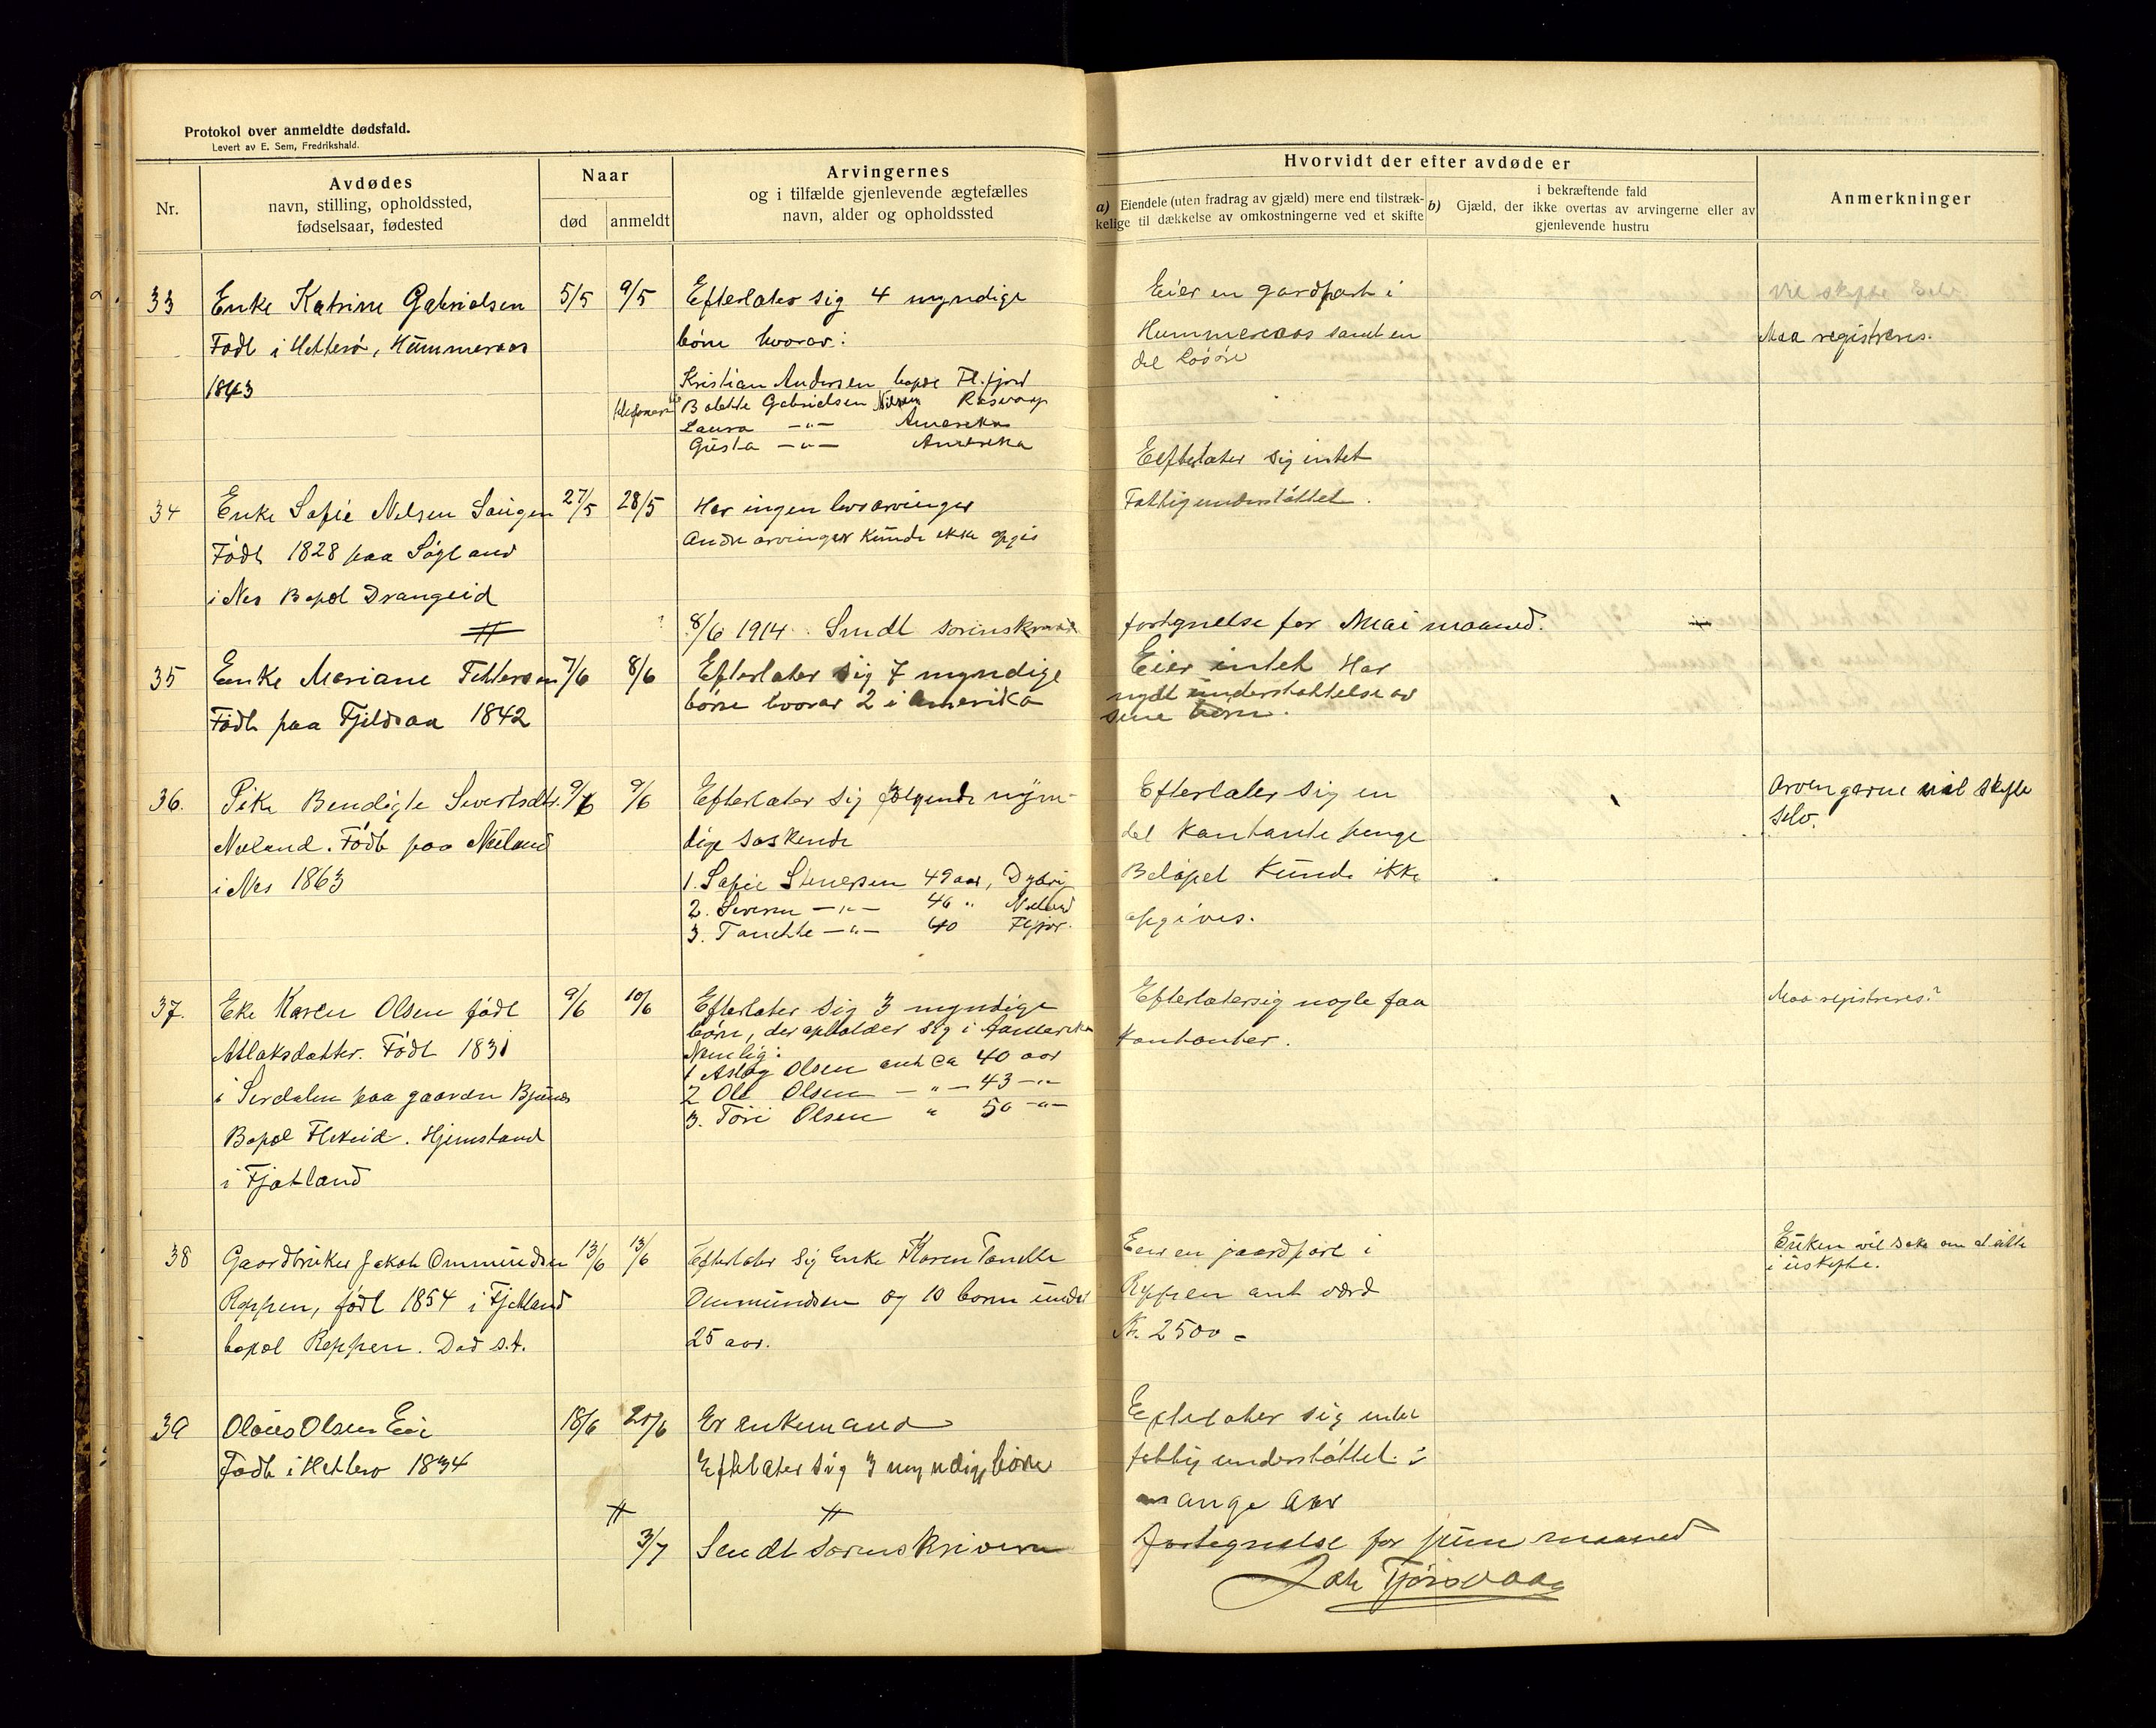 Protokol over anmeldte dødsfald.
Levert av E. Sem, Fredrikshald.
Nr.
Avdødes
navn, stilling, opholdssted,
fødselsaar, fødested
Naar
død
anmeldt
Arvingernes
og i tilfælde gjenlevende ægtefælles
navn, alder og opholdssted
Hvorvidt der efter avdøde er
a) Eiendele (uten fradrag av gjæld) mere end tilstræk-
kelige til dækkelse av omkostningerne ved et skifte
b)
i bekræftende fald
Gjæld, der ikke overtas av arvingerne eller av
gjenlevende hustru
Anmerkninger
33
Enke Katrine Gabrielsen
Født i Hitterø, Hummeraas
1843
5/5
9/5
Efterlater sig 4 myndige
børn hvorav:
Kristian Andersen bopæl Fl.fjord
Bolette Gabrielsen Nilsen Rasvaag
Laura —"— Amerika
Gusta —"— Amerika
Eier en gardpart i
Hummeraas samt en
del løsøre
vil skifte selv
Maa registreres.
34
Enke Sofie Nilsen Saugen
Født 1828 paa Søyland
i Nes Bopæl Drangeid
27/5
28/5
Har ingen livsarvinger
Andre arvinger kunde ikke opgis
Eefterlater sig intet
Fattigunderstøttet.
8/6 1914. Sendt sorenskriver
fortegnelse for Mai maaned.
35
Eenke Mariane Tettersen
Født paa Fjeldsaa 1842
7/6
8/6
Efterlater sig 7 myndige
børn hvorav 2 i Amerika
Eier intet Har
nydt understøttelse av
sine børn.
36.
Pike Bendigte Sivertsdtr.
Nuland. Født paa Nuland
i Nes 1863
9/6
9/6
Efterlater sig følgende myn-
dige søskende
1. Sofie Stenersen 49 aar,
2. Severin —"— 46 " Nuland
3. Tanette —"— 40 Flfjor.
Efterlater sig en
del kontante penge
Beløpet kunde ikke
opgives.
Arvingerne vil skifte
selv.
37.
Eke Karen Olsen født
Atlaksdatter. Født 1831
i Sirdalen paa gaarden
Bopæl Flikeid. Hjemstavd
i Fjotland
9/6
10/6
Efterlater sig 3 myndige
børn, der opholder sig i Aamerika
Nemlig:
1 Aslog Olsen ant ca 40 aar
2 Ole Olsen — " — 43 —"—
3. Tori Olsen " 50 —"—
Efterlatersig nogle faa
kontanter.
Maa registreres?
38
Gaardbruker Jakob Ommundsen
Reppen, født 1854 i Fjotland
bopæl Reppen. Død s.t.
13/6
13/6
Efterlater sig Enke Karen Tandle
Ommundsen og 10 børn under
25 aar.
Eier en gaardpart i
Reppen ant værd
Kr. 2500 =
Enken vil søke om at sitte
i uskifte.
39
Olaus Olsen Eie
Født i Hitterø 1834
18/6
20/6
Er enkemand
Efterlater sig 3 myndige børn
Efterlater sig intet
fattig understøttet i
mange aar
3/7
Sendt sorenskriveren
fortegnelse for juni maaned
Joh Tjørsvaag